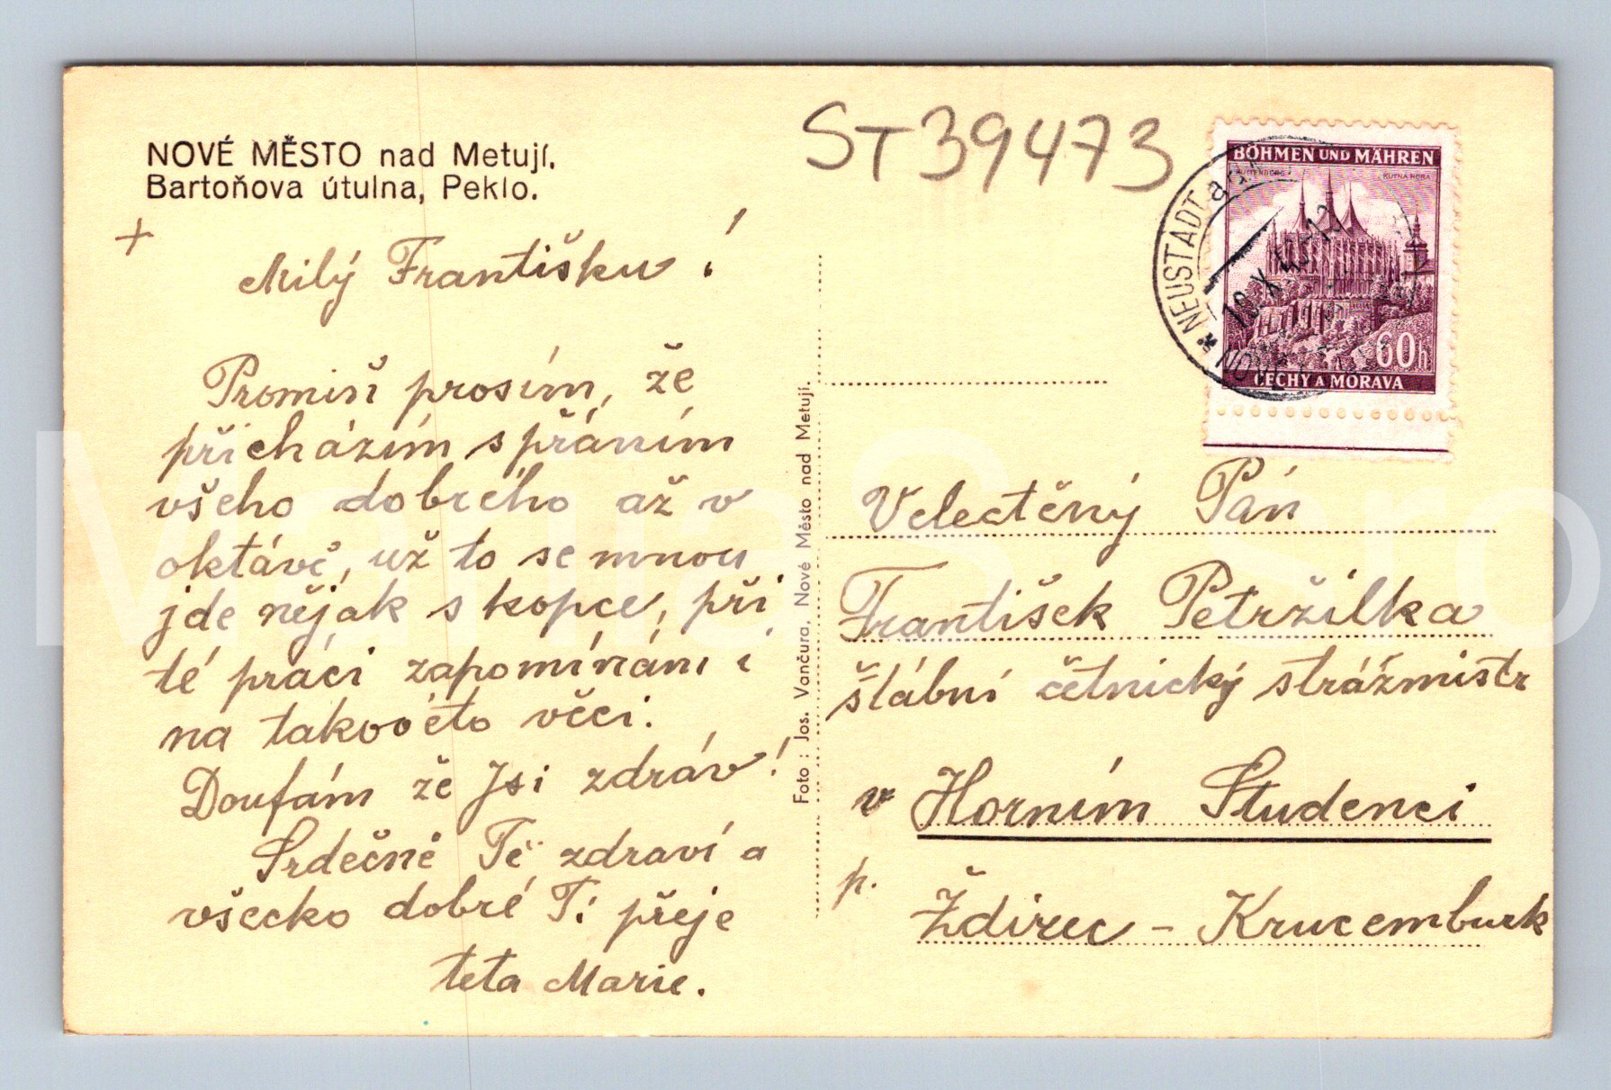 NOVÉ MĚSTO nad Metují.
Bartoňova útulna, Peklo.
ST39473
+
Milý Františku !
Promiň prosím, že
přicházím s přáním
všeho dobrého až v
oktávě, už to se mnou
jde nějak s kopce, při
té práci zapomínám i
na takovéto věci.
Doufám že Jsi zdráv!
Srdečně Tě zdraví a
všecko dobré Ti přeje
teta Marie.
Foto : Jos. Vančura, Nové Město nad Metují.
BÖHMEN UND MÄHREN
KUTTENBERG KUTNÁ HORA
60h
ČECHY A MORAVA
* NEUSTADT a.d.
NOVÉ
Velectěný Pán
František Petržilka
štábní četnický strážmistr
v Horním Studenci
p. Ždirec - Krucemburk